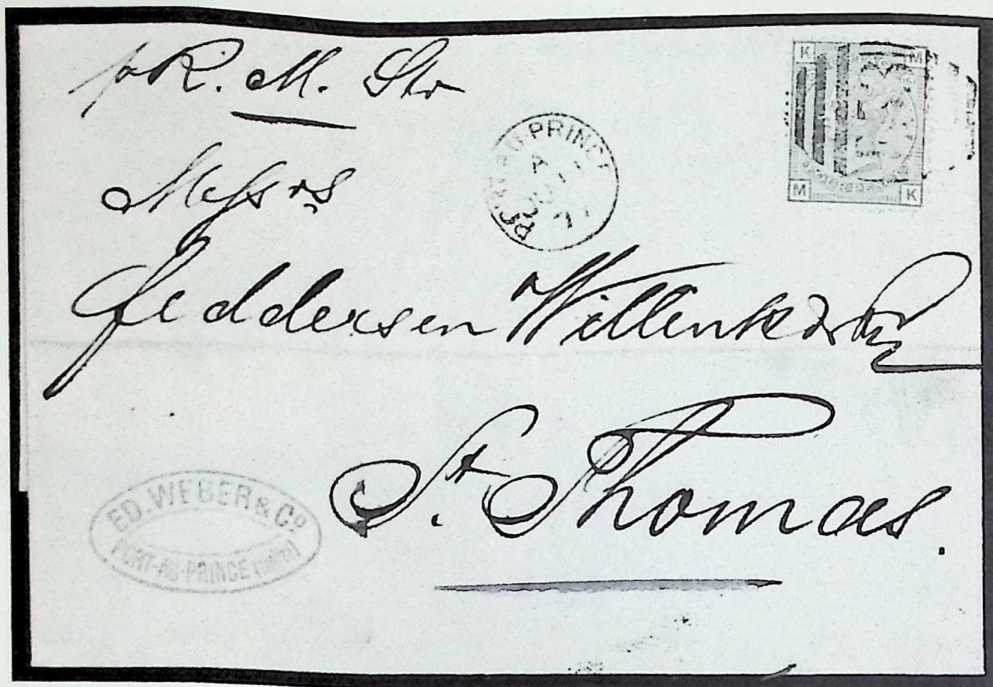 pr R. M. Str
K M
M K
PORT-AU-PRINCE
A
Messrs
Feddersen Willink & Co
St. Thomas.
ED. WEBER & Co
PORT-AU-PRINCE (Haïti)